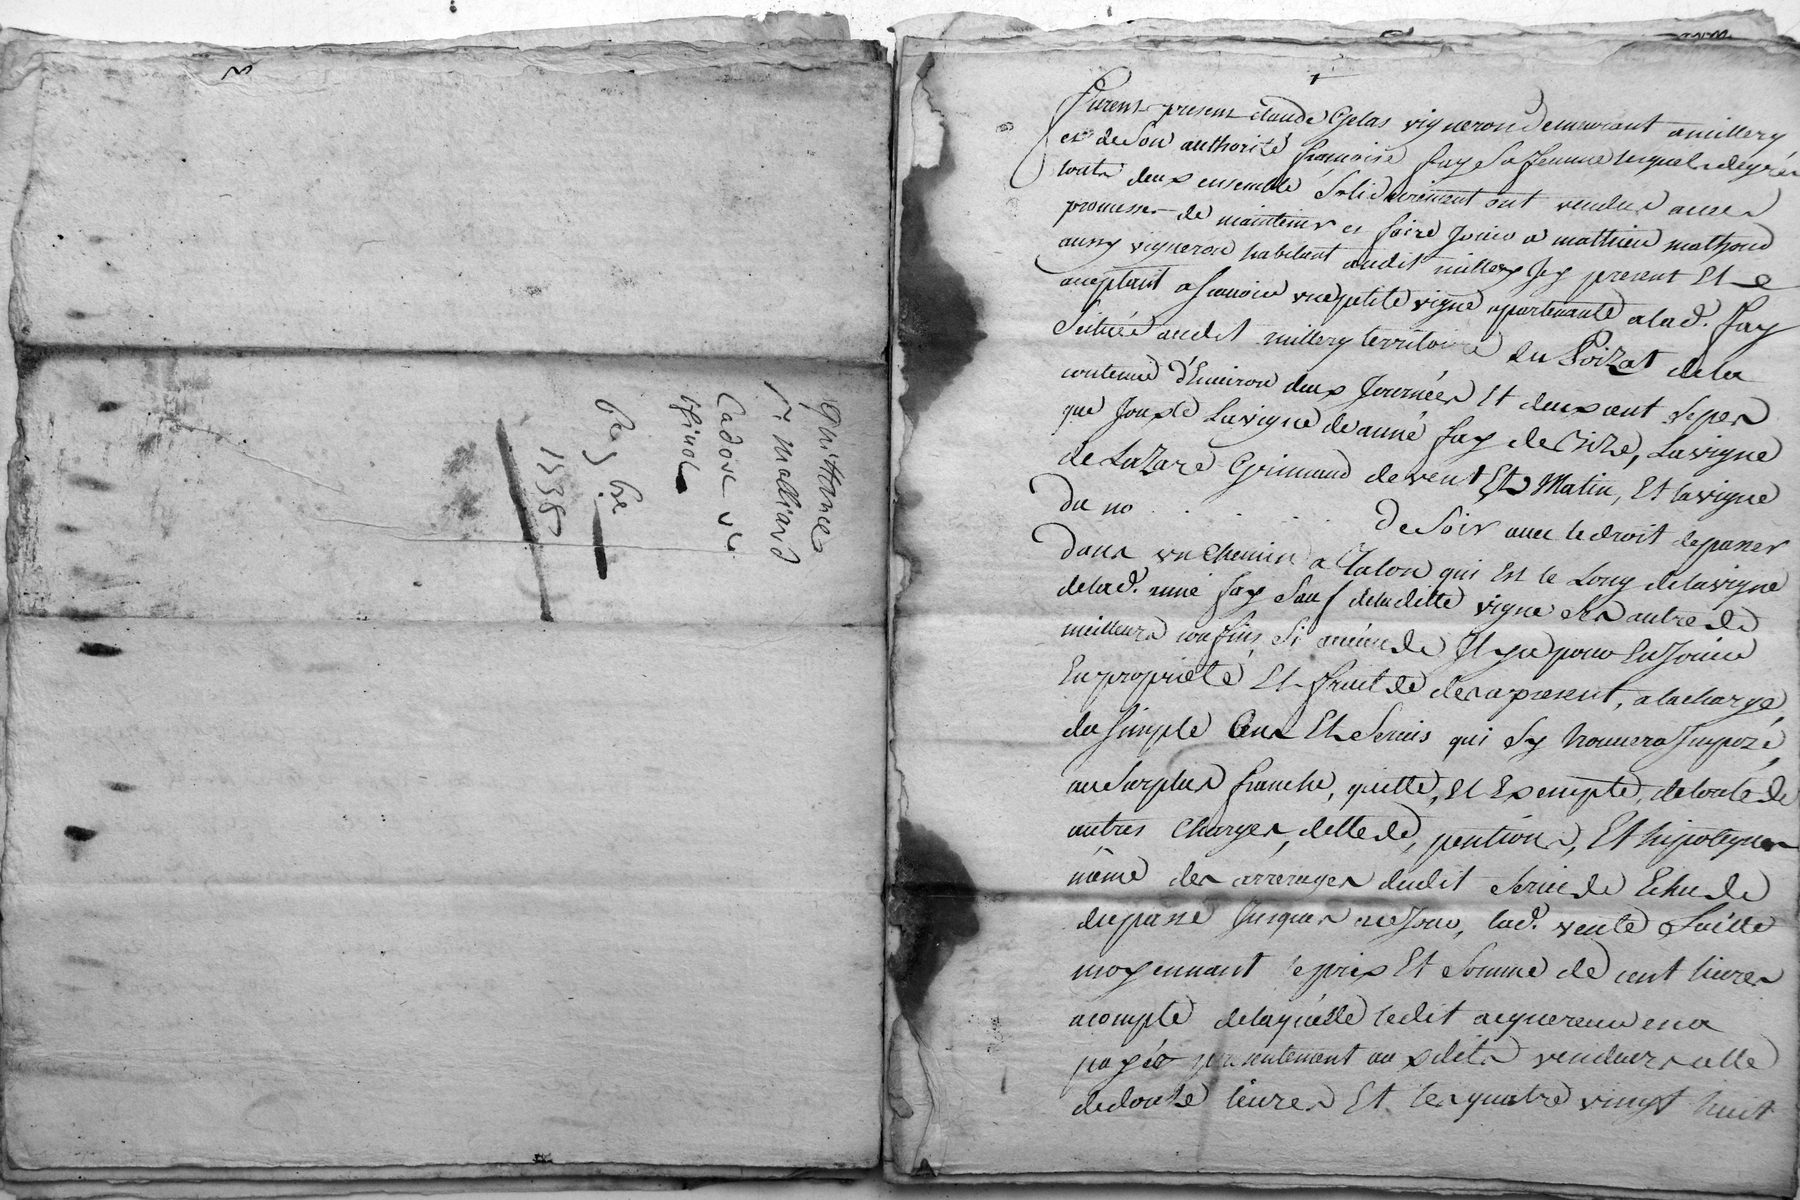 Quittance
Malliard
Cadose
1738
Furent present claude Gelas vigneron demeurant a millery
et de Son authorité françoise fay Sa femme lesquels de gré
touts deux ensemble Solidairement ont vendus avec
promesse de maintenir et faire Jouir a mathieu mathoud
aussy vigneron habitant audit millery Icy present Et
aceptant a scavoir une petite vigne apartenante a lad. fay
Scituée audit millery territoire du Poizat de la
contenue d'Environ deux Journées Et deux cent Seper
que Jouxte La vigne de anne fay de bize, La vigne
de Lazare Grimaud de vent Et Matin, Et la vigne
du no . . . . . de Soir avec le droit de passer
dans un Chemin a Talon qui Est le Long de la vigne
de lad. anne fay Sauf de la ditte vigne Ses autre de
meilleurs confins Si aucun de Il y a pour En Jouir
En proprieté Et fruit de des a present, a la charge
du Simple Cens Et Servis qui Sy trouvera Impozé,
au Surplus franche, quitte, Et Exempte, de toute de
autres Charges, dette de, pention, Et hipoteques
même des arrerages dudit Servis de Echu de
du passé Jusques a ce Jour, lad. vente faitte
moyennant le prix Et Somme de cent livres
a compte de laquelle ledit acquereur en a
payée presentement aux dits vendeurs celle
de douze livres Et les quatre vingt huit